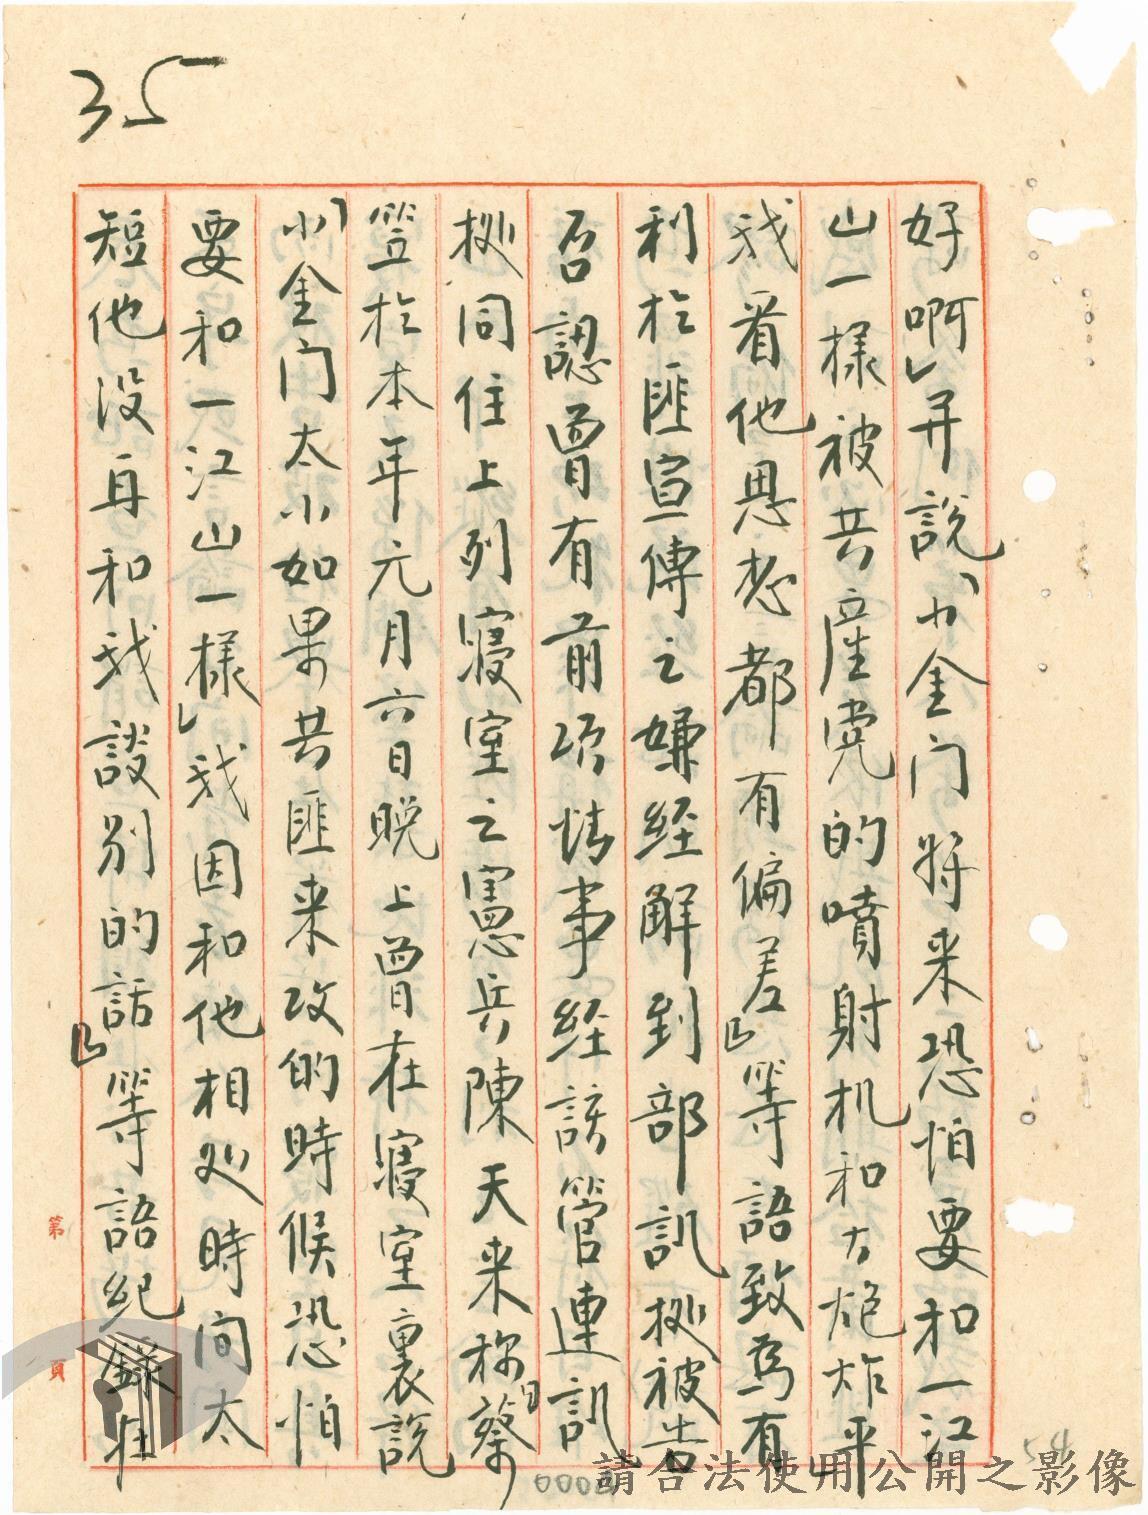 35
好啊」并說「小金门將来恐怕要和一江
山一樣被共產党的噴射机和大炮炸平
我看他思想都有偏差』等語致為有
利於匪宣傳之嫌経解到部訊拠被告
否認曾有前項情事経該管連訊
拠同住上列寢室之憲兵陳天来称「蔡
笠於本年元月六日晚上曾在寢室裏說
「小金门太小如果共匪来攻的時候恐怕
要和一江山一樣」我因和他相処時间太
短他没再和我談别的話』等語紀錄在
第
頁
54
請合法使用公開之影像